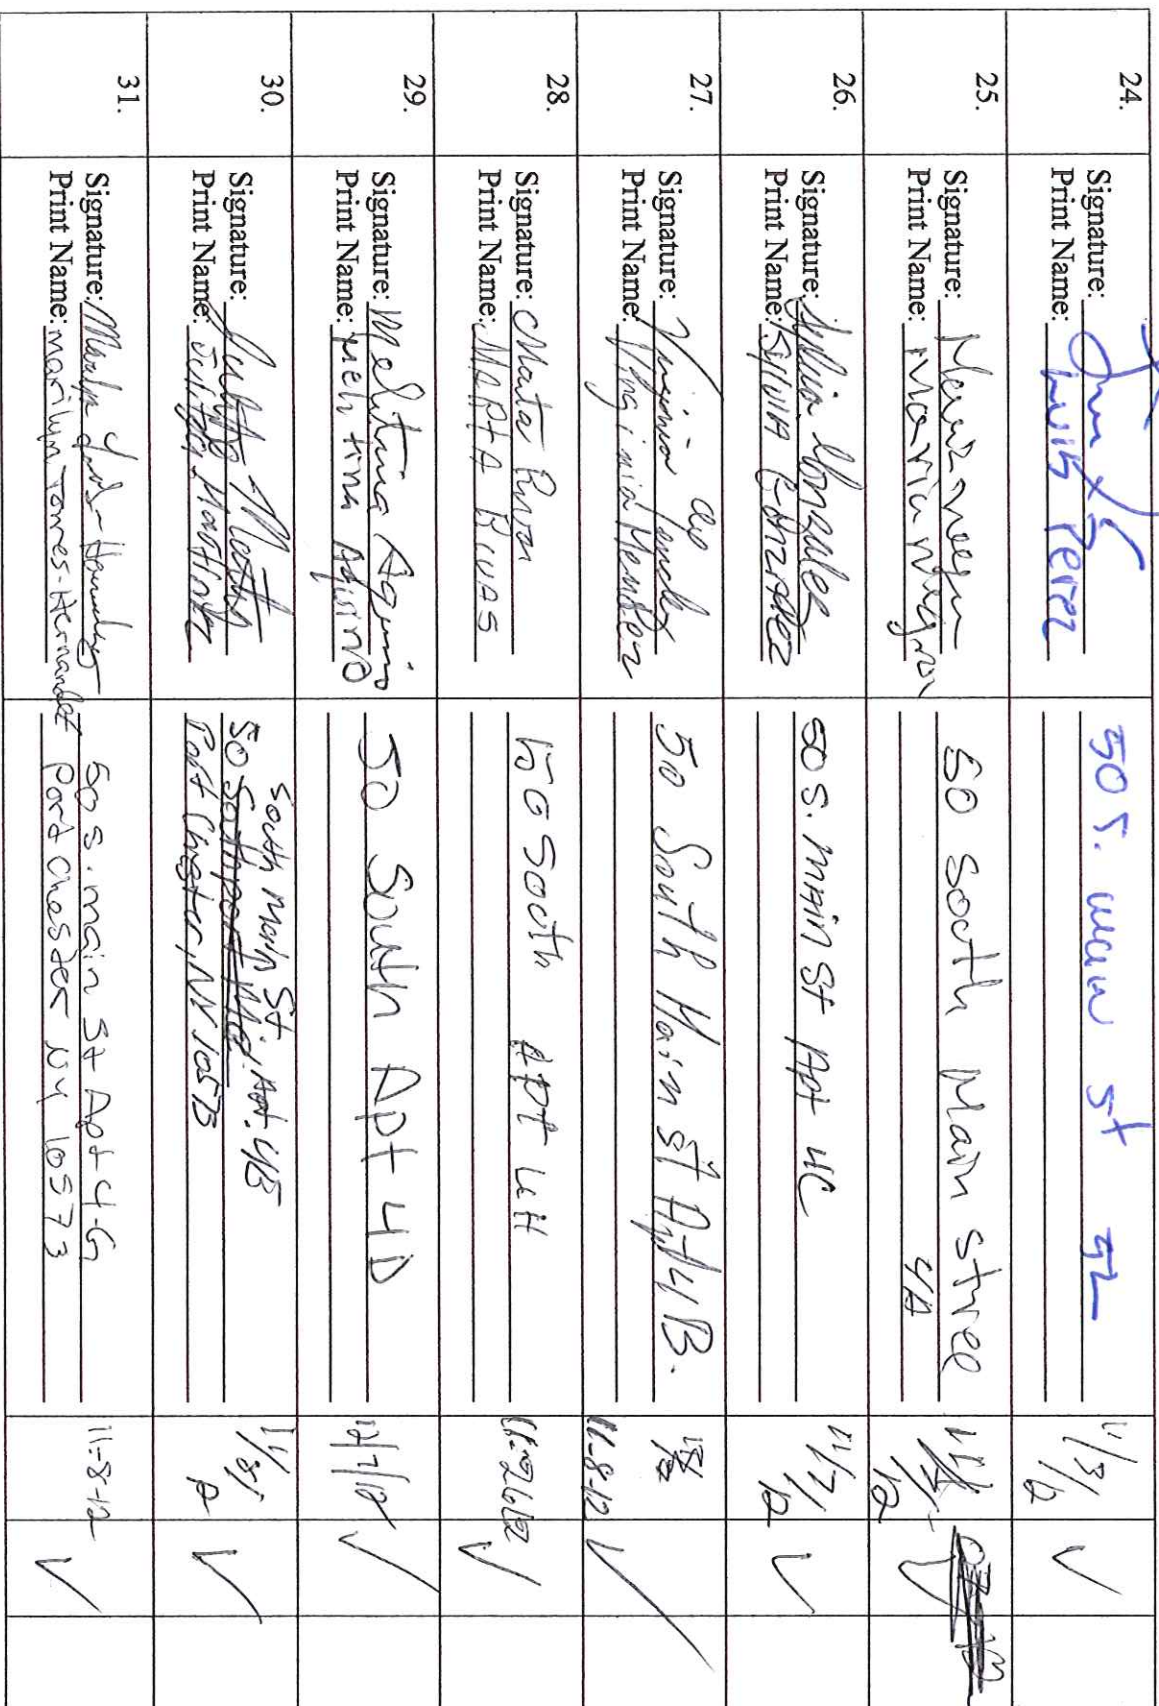 24.
Signature:
Print Name: Luis Perez
50 S. main st 52
11/3/12
25.
Signature:
Print Name: Maria
50 South Main stree
4A
11/
12
26.
Signature: Sylvia Gonzalez
Print Name: SylviA GonzAlez
50 S. MAin St Apt 4C
11/7/
12
27.
Signature: Virginia Mendez
Print Name: Virginia Mendez
50 South Main st Apt 4B.
11-8-12
28.
Signature: Marta Rivas
Print Name: MARTA RivAS
50 South APT 4H
29.
Signature: Melitina Aquino
Print Name: Melitina Aquino
50 South Apt 4D
12/7/12
30.
Signature: Julitza Martinez
Print Name: Julitza Martinez
South Main St.
50 Apt. 4B
Port Chester, NY 10573
11/8/
12
31.
Signature: Marilyn Torres-Hernandez
Print Name: Marilyn Torres-Hernandez
50 S. main St Apt 4-G
Port Chester NY 10573
11-8-12